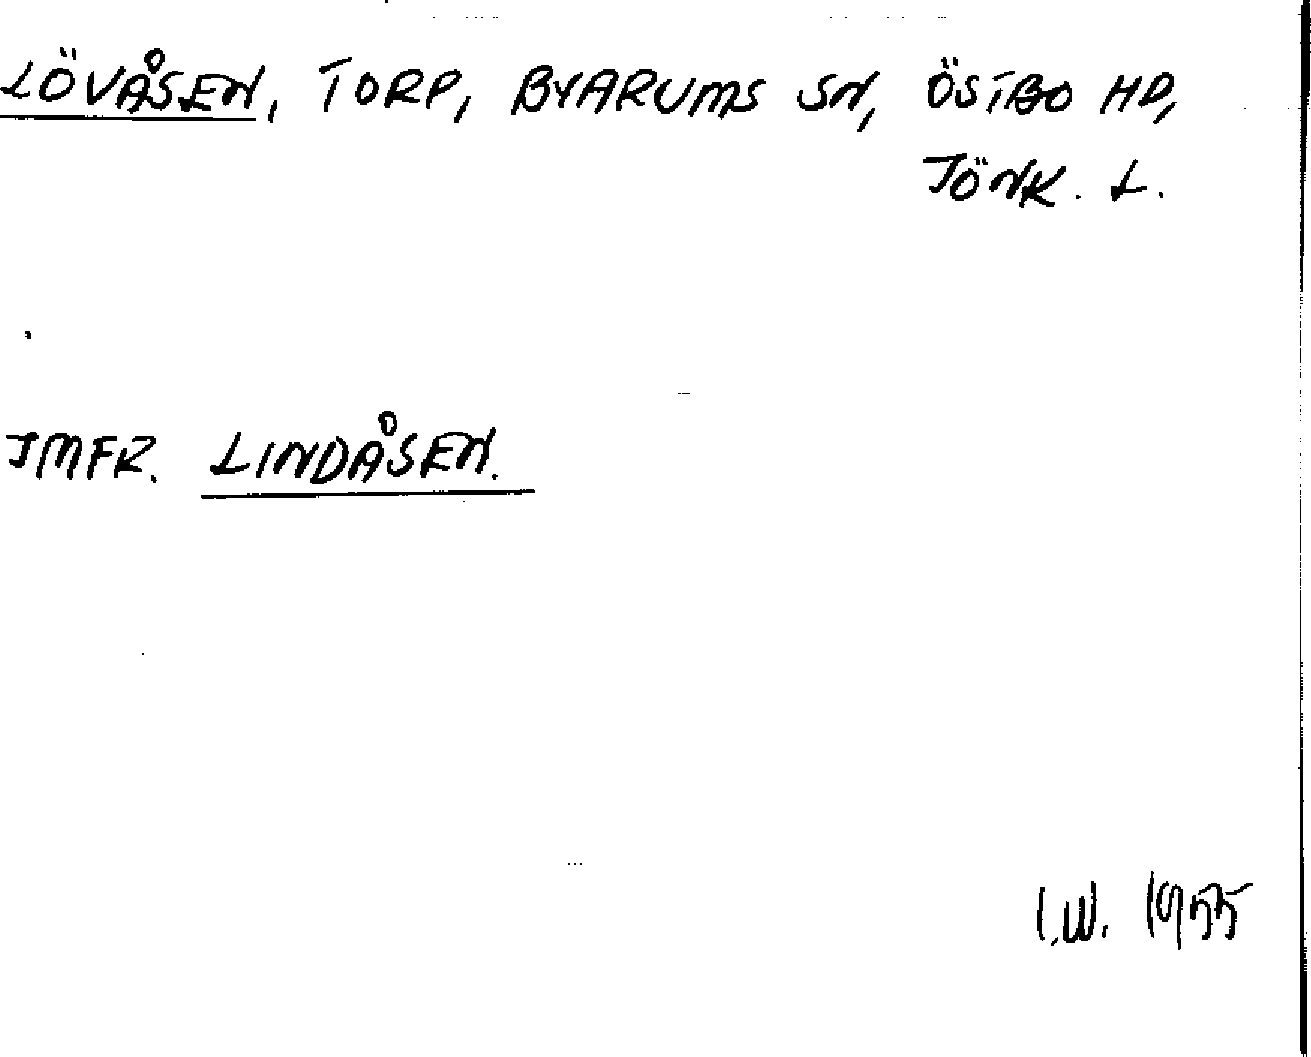 LÖVÅSEN, TORP, BYARUMS SN, ÖSTBO HD,
JÖNK. L.
JMFR. LINDÅSEN.
I.W. 1955